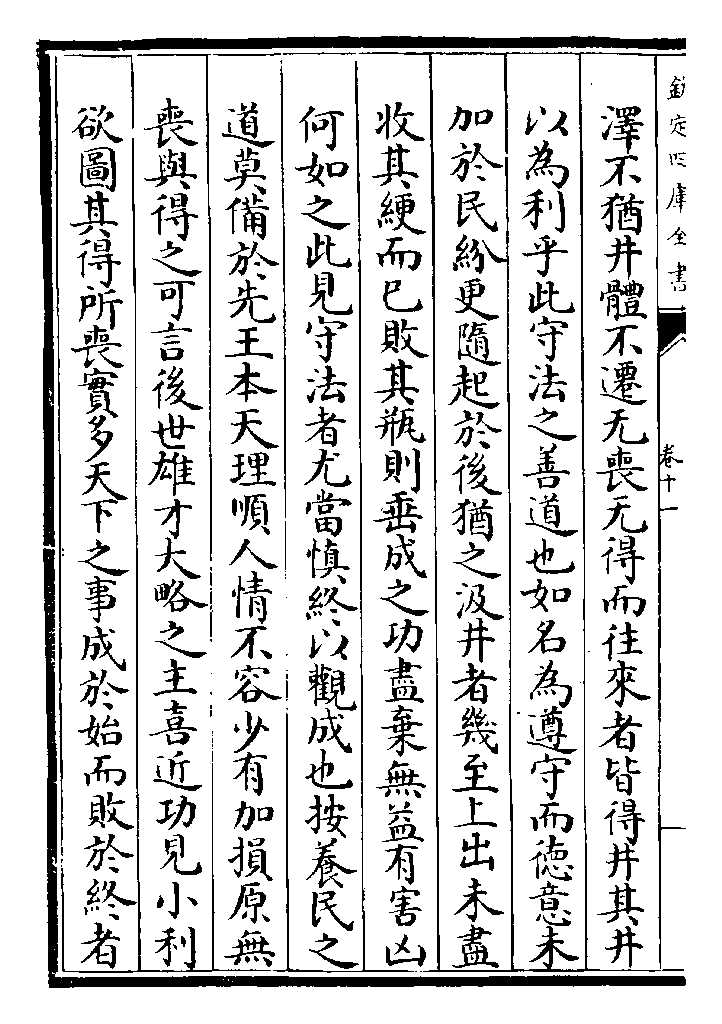 欽定四庫全書
卷十一
澤不猶井體不遷无喪无得而往來者皆得井其井
以為利乎此守法之善道也如名為遵守而德意未
加於民紛更隨起於後猶之汲井者幾至上出未盡
收其綆而已敗其瓶則垂成之功盡棄無益有害凶
何如之此見守法者尤當慎終以觀成也按養民之
道莫備於先王本天理順人情不容少有加損原無
喪與得之可言後世雄才大略之主喜近功見小利
欲圖其得所喪實多天下之事成於始而敗於終者